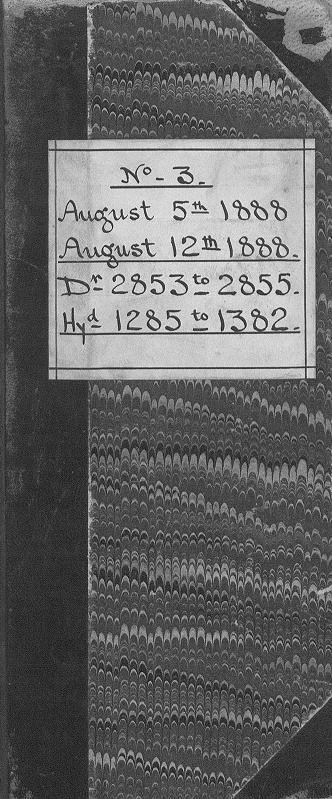 No - 3.
August 5th 1888
August 12th 1888.
Dr 2853 to 2855.
Hyd 1285 to 1382.